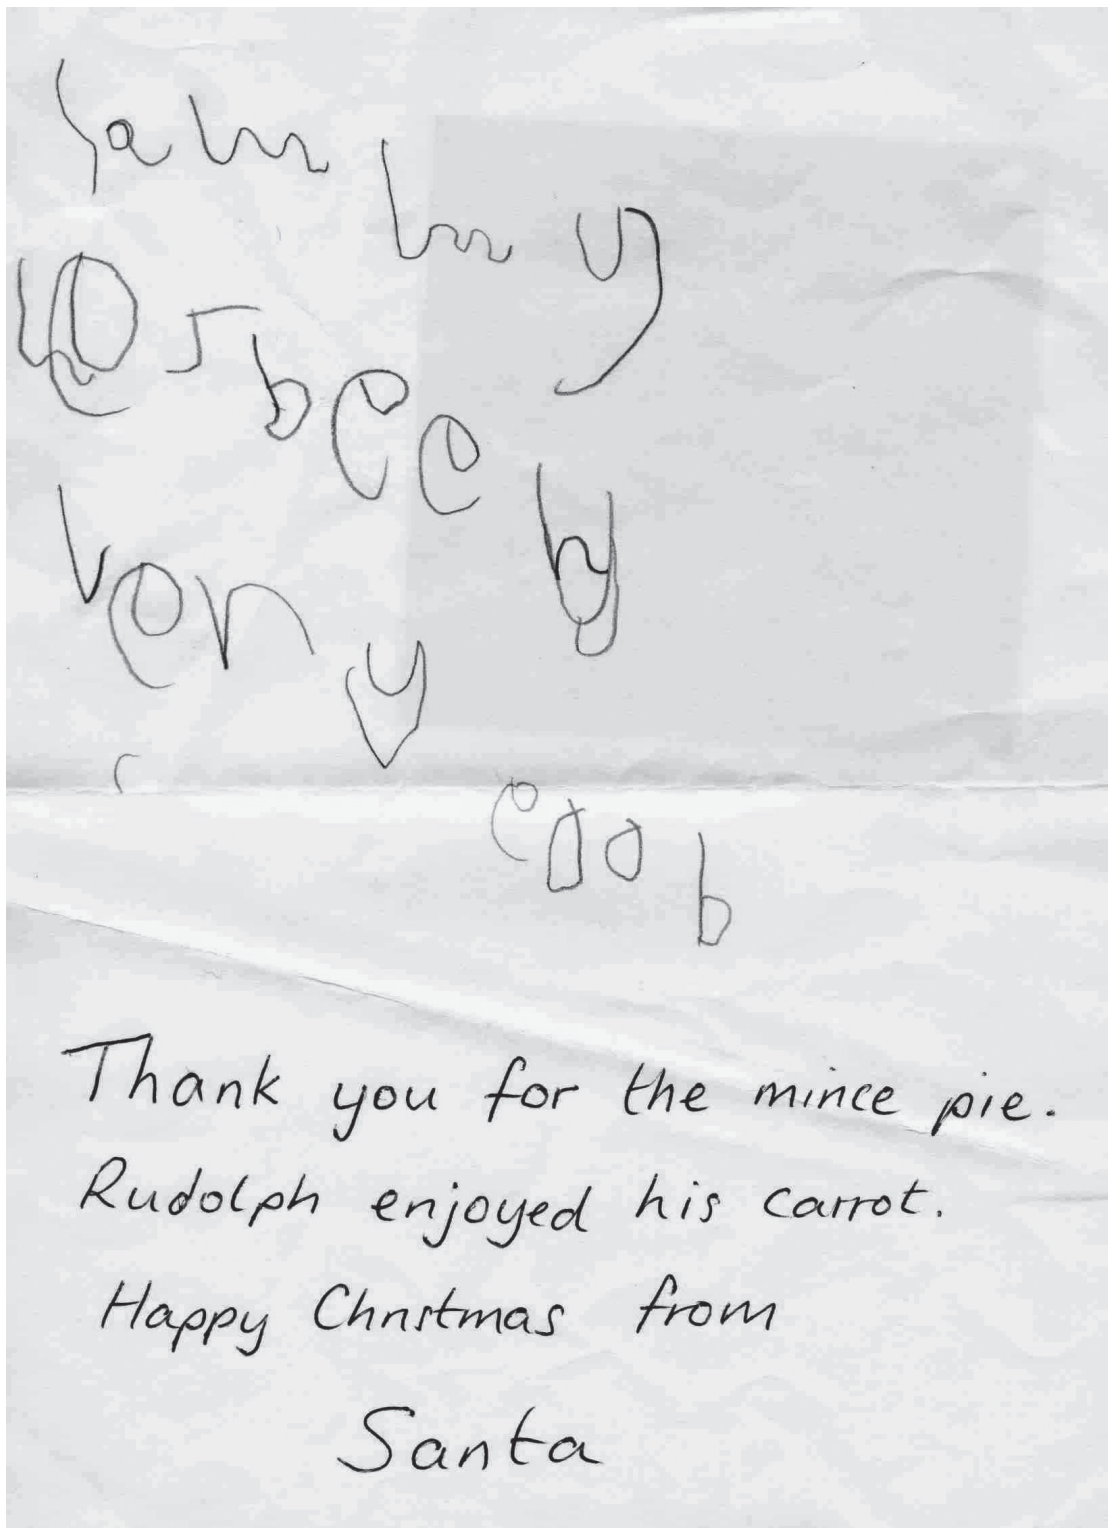 Sammy
has been
very
Thank you for the mince pie.
Rudolph enjoyed his carrot.
Happy Christmas from
Santa